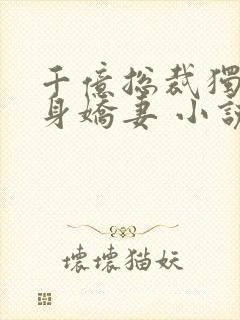 千億總裁獨
身嬌妻 小說
壞壞貓妖